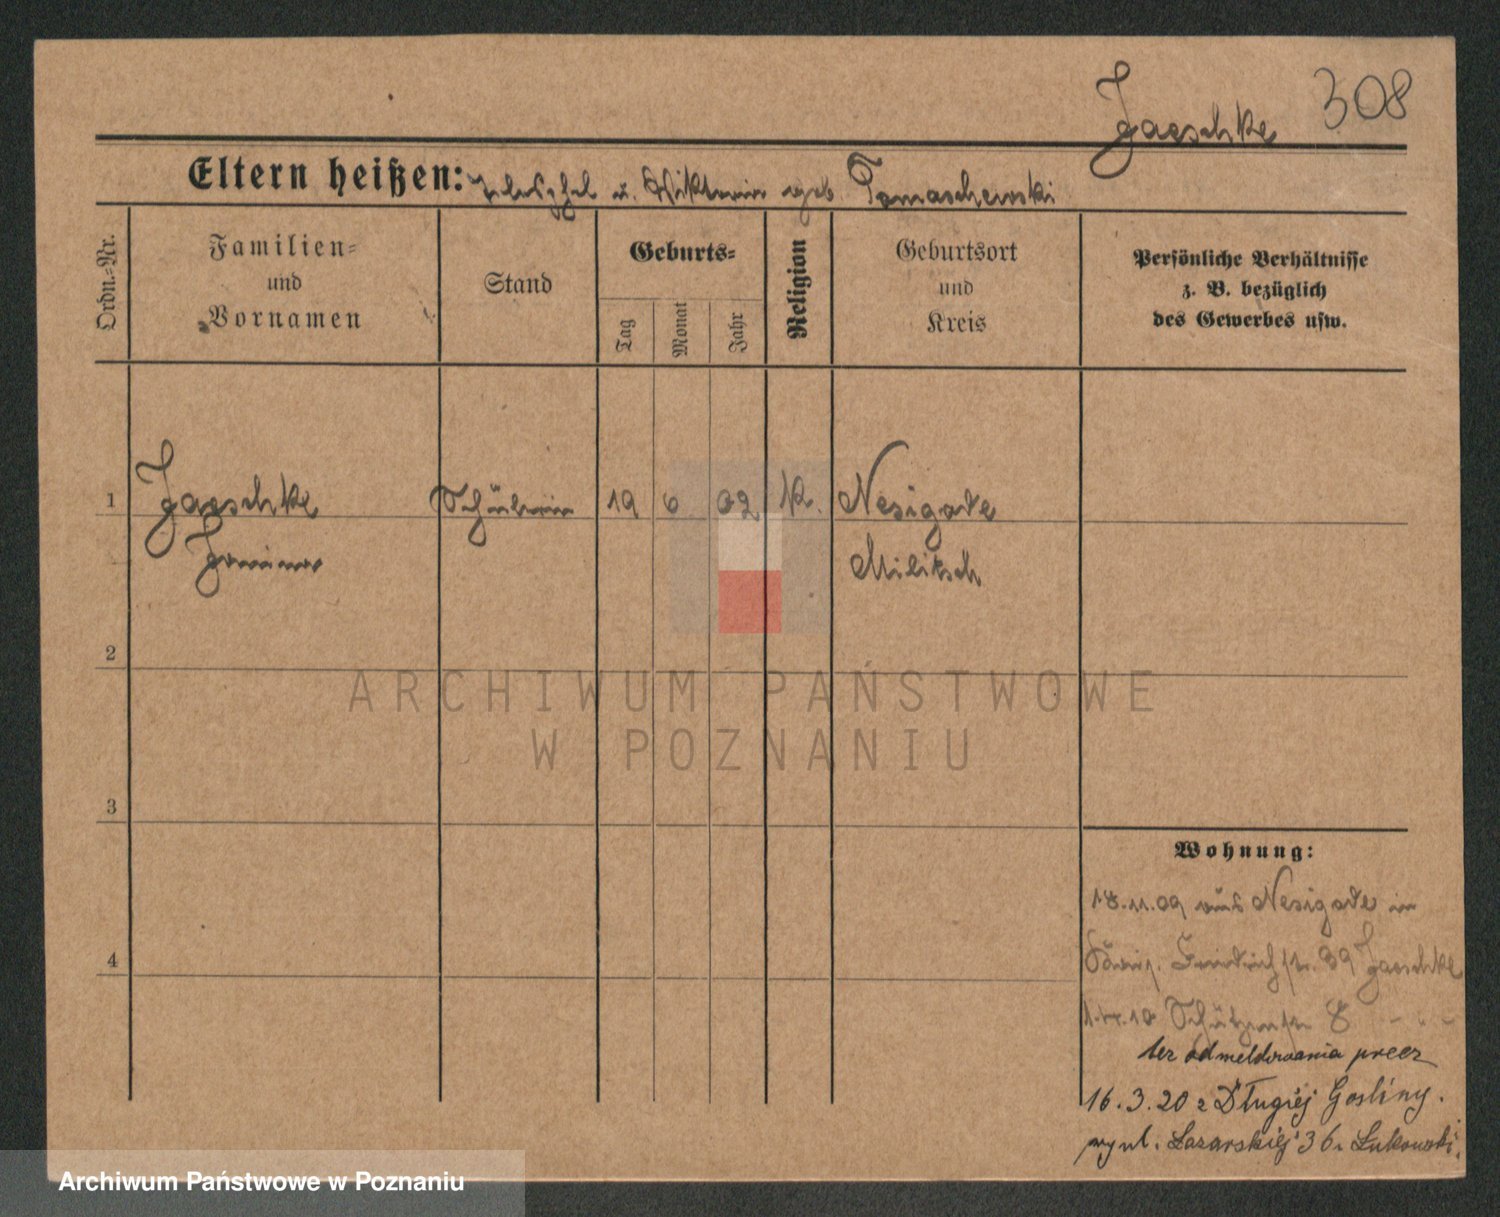 308
Jaeschke
Eltern heißen: u. Viktoria geb. Tomaschewski
Ordn.=Nr.
Familien=
und
Vornamen
Stand
Geburts=
Tag
Monat
Jahr
Religion
Geburtsort
und
Kreis
Persönliche Verhältnisse
z. B. bezüglich
des Gewerbes usw.
1 Jaeschke Schülerin 19 6 02 K. Nesigode
Militsch
2
3
4
Wohnung:
18.11.09 aus Nesigode in
39 Jaeschke
Schützenstr. 8
bez odmeldowania precz
16.3.20 z Długiéj Gosliny.
Łazarskiéj 36
ARCHIWUM PAŃSTWOWE
W POZNANIU
Archiwum Państwowe w Poznaniu